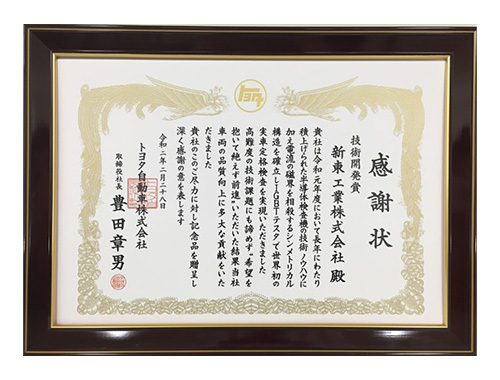 トヨタ
感謝状
技術開発賞
新東工業株式会社 殿
貴社は令和元年度において長年にわたり
積上げられた半導体検査機の技術・ノウハウに
加え電流の磁界を相殺するシンメトリカル
構造を確立しIGBTテスタで世界初の
実車定格検査を実現いただきました
高難度の技術課題にも諦めず“希望を
抱いて絶えず前進”いただいた結果当社
車両の品質向上に多大な貢献をいた
だきました
貴社のこのご尽力に対し記念品を贈呈し
深く感謝の意を表します
令和二年二月二十八日
トヨタ自動車株式会社
取締役社長 豊田章男